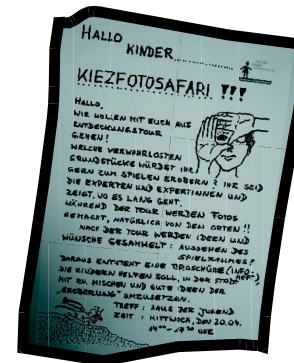 HALLO
KINDER
KIEZFOTOSAFARI !!!
HALLO,
WIR WOLLEN MIT EUCH AUF
ENTDECKUNGSTOUR
GEHEN!
WELCHE VERWAHRLOSTEN
GRUNDSTÜCKE WÜRDET IHR
GERN ZUM SPIELEN EROBERN? IHR SEID
DIE EXPERTEN UND EXPERTINNEN UND
ZEIGT, WO ES LANG GEHT.
WÄHREND DER TOUR WERDEN FOTOS
GEMACHT, NATÜRLICH VON DEN ORTEN!!
NACH DER TOUR WERDEN IDEEN UND
WÜNSCHE GESAMMELT: AUSSEHEN DES
SPIELRAUMES?
DARAUS ENTSTEHT EINE BROSCHÜRE (INFO-
HEFT),
DIE KINDERN HELFEN SOLL, IN DER STADT
MIT ZU MISCHEN UND GUTE IDEEN DER
„EROBERUNG" UMZUSETZEN.
TREFF: HAUS DER JUGEND
ZEIT: MITTWOCH, DEN 20.04.
UHR